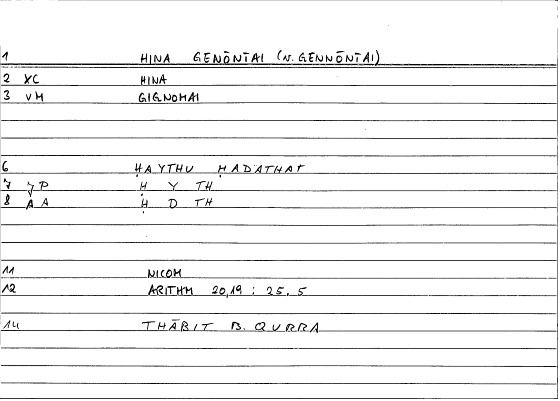 1 HINA GENŌNTAI (N. GENNŌNTAI)
2 XC HINA
3 VM GIGNOMAI
6 ḤAYTHU ḤADATHAT
7 JP Ḥ Y TH
8 AA Ḥ D TH
11 NICOM
12 ARITHM 20,19 : 25.5
14 THĀBIT B. QURRA